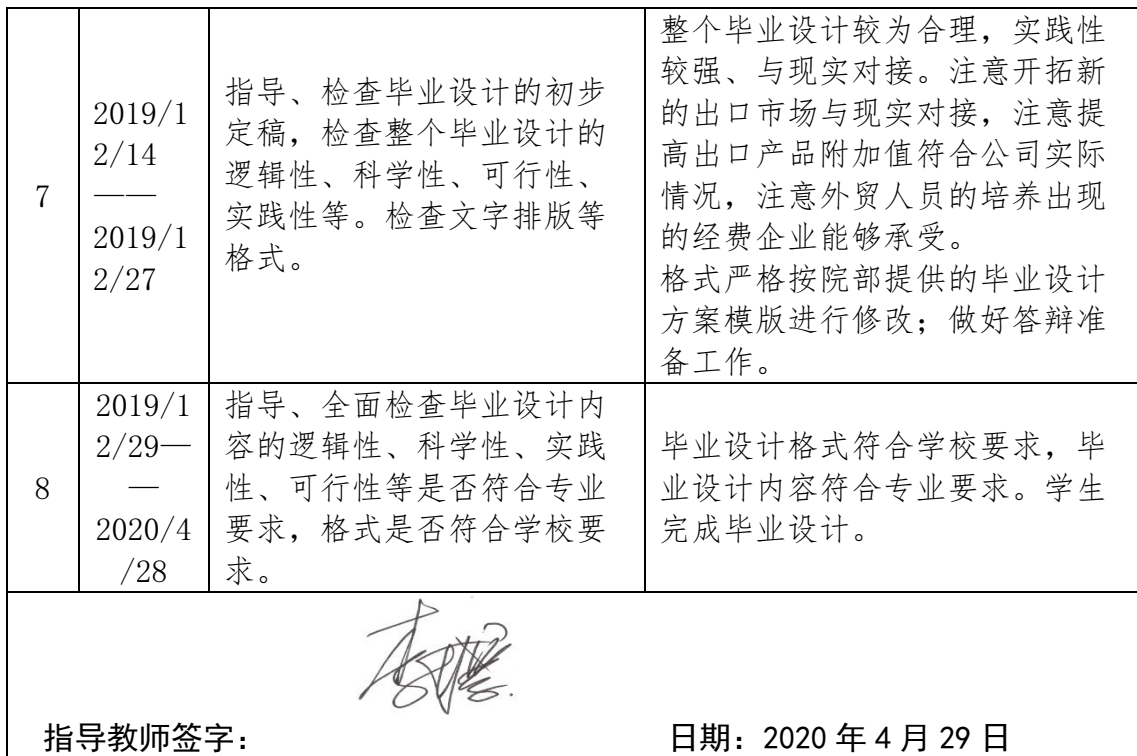 7
2019/1
2/14
——
2019/1
2/27
指导、检查毕业设计的初步
定稿，检查整个毕业设计的
逻辑性、科学性、可行性、
实践性等。检查文字排版等
格式。
整个毕业设计较为合理，实践性
较强、与现实对接。注意开拓新
的出口市场与现实对接，注意提
高出口产品附加值符合公司实际
情况，注意外贸人员的培养出现
的经费企业能够承受。
格式严格按院部提供的毕业设计
方案模版进行修改；做好答辩准
备工作。
8
2019/1
2/29—
—
2020/4
/28
指导、全面检查毕业设计内
容的逻辑性、科学性、实践
性、可行性等是否符合专业
要求，格式是否符合学校要
求。
毕业设计格式符合学校要求，毕
业设计内容符合专业要求。学生
完成毕业设计。
指导教师签字：
日期：2020 年 4 月 29 日